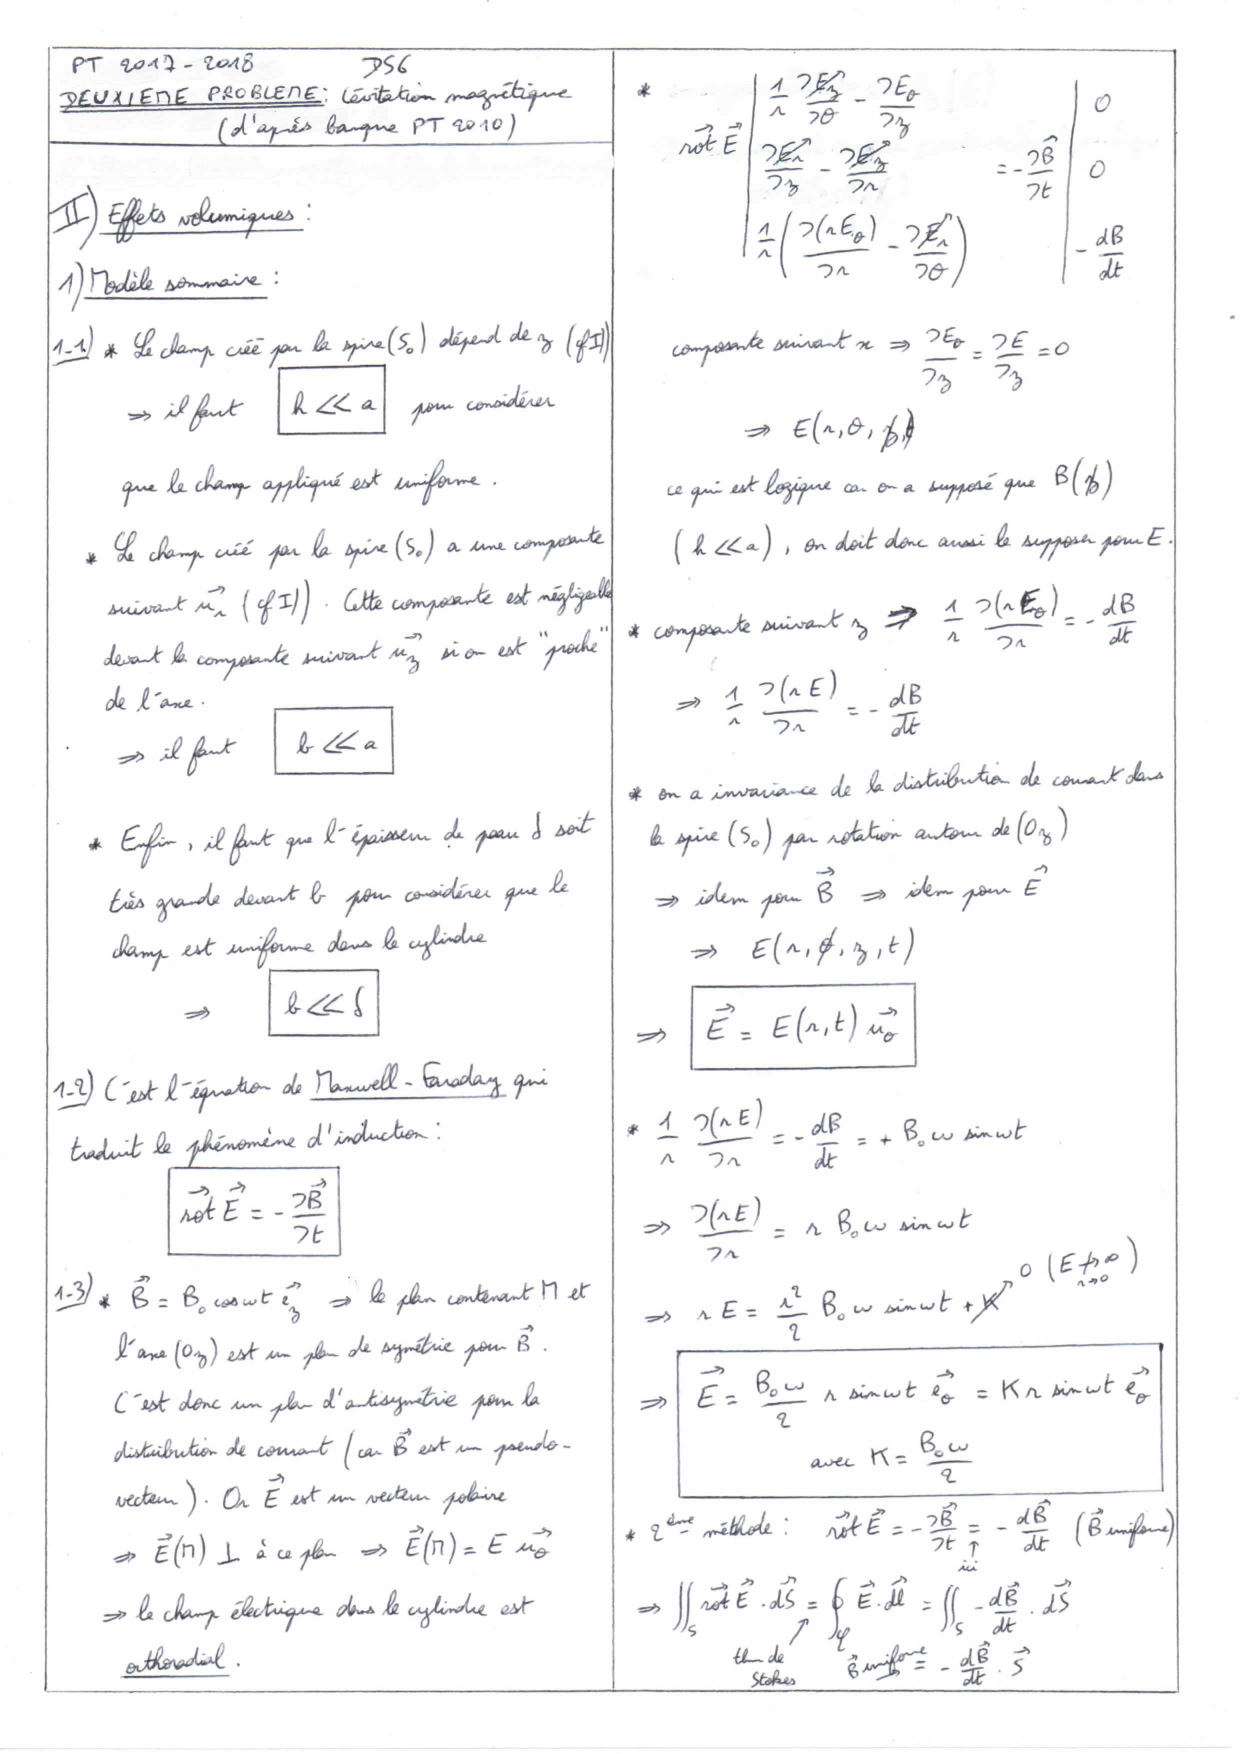 PT 2017-2018 DS6
DEUXIEME PROBLEME : Lévitation magnétique
(d'après banque PT 2010)
II) Effets volumiques :
1) Modèle sommaire :
1-1) * Le champ créé par la spire (S₀) dépend de z (cf I)
⇒ il faut h << a pour considérer
que le champ appliqué est uniforme.
* Le champ créé par la spire (S₀) a une composante
suivant u⃗r (cf I). Cette composante est négligeable
devant la composante suivant u⃗z si on est "proche"
de l'axe.
⇒ il faut b << a
* Enfin, il faut que l'épaisseur de peau δ soit
très grande devant b pour considérer que le
champ est uniforme dans le cylindre
⇒ b << δ
1-2) C'est l'équation de Maxwell-Faraday qui
traduit le phénomène d'induction :
rot⃗ E⃗ = - ∂B⃗/∂t
1-3) * B⃗ = B₀ cos ωt e⃗z ⇒ le plan contenant M et
l'axe (Oz) est un plan de symétrie pour B⃗.
C'est donc un plan d'antisymétrie pour la
distribution de courant (car B⃗ est un pseudo-
vecteur). Or E⃗ est un vecteur polaire
⇒ E⃗(M) ⊥ à ce plan ⇒ E⃗(M) = E u⃗θ
⇒ le champ électrique dans le cylindre est
orthoradial.
* rot⃗ E⃗ | 1/r ∂Ez/∂θ - ∂Eθ/∂z | 0
| ∂Er/∂z - ∂Ez/∂r = - ∂B⃗/∂t | 0
| 1/r (∂(rEθ)/∂r - ∂Er/∂θ) | - dB/dt
composante suivant r ⇒ ∂Eθ/∂z = ∂E/∂z = 0
⇒ E(r, θ, z, t)
ce qui est logique car on a supposé que B(z)
(h << a), on doit donc aussi le supposer pour E.
* composante suivant z ⇒ 1/r ∂(rEθ)/∂r = - dB/dt
⇒ 1/r ∂(rE)/∂r = - dB/dt
* on a invariance de la distribution de courant dans
la spire (S₀) par rotation autour de (Oz)
⇒ idem pour B⃗ ⇒ idem pour E⃗
⇒ E(r, θ, z, t)
⇒ E⃗ = E(r,t) u⃗θ
* 1/r ∂(rE)/∂r = - dB/dt = + B₀ ω sin ωt
⇒ ∂(rE)/∂r = r B₀ ω sin ωt
⇒ rE = r²/2 B₀ ω sin ωt + K 0 (E ↛ ∞ r→0)
⇒ E⃗ = B₀ω/2 r sin ωt e⃗θ = K r sin ωt e⃗θ
avec K = B₀ω/2
* 2ème méthode : rot⃗ E⃗ = - ∂B⃗/∂t = - dB⃗/dt (B⃗ uniforme)
ici
⇒ ∬S rot⃗ E⃗ . dS⃗ = ∮𝒞 E⃗ . dl⃗ = ∬S - dB⃗/dt . dS⃗
thm de Stokes B⃗ uniforme = - dB⃗/dt . S⃗